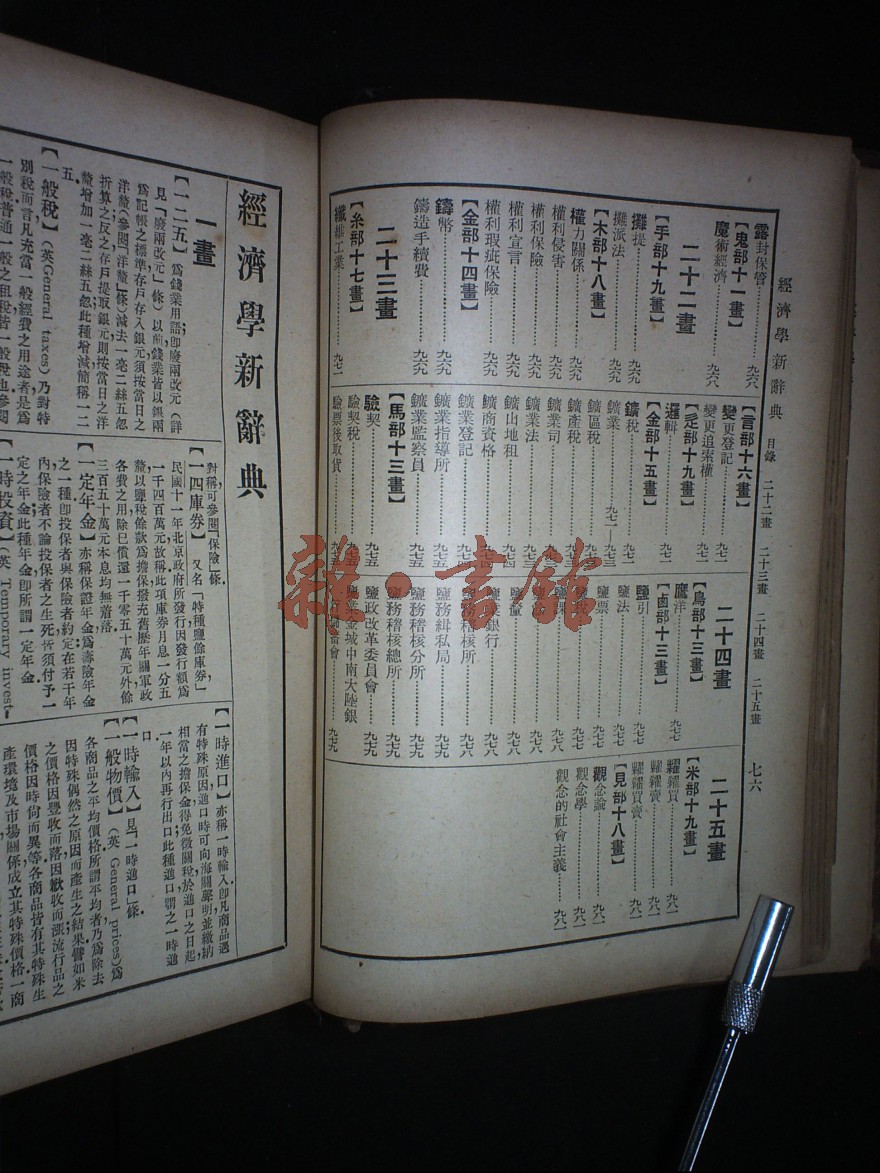 經濟學新辭典 目錄 二十二畫 二十三畫 二十四畫 二十五畫 七六
露封保管 九六六
【鬼部十一畫】
魔術經濟 九六八
二十二畫
【手部十九畫】
攤提 九六九
攤派法 九六九
【木部十八畫】
權力關係 九六九
權利侵害 九六九
權利保險 九六九
權利宣言 九六九
權利瑕疵保險 九六九
【金部十四畫】
鑄幣 九六九
鑄造手續費 九六九
二十三畫
【糸部十七畫】
纖維工業 九七一
【言部十六畫】
變更登記 九七一
變更追索權 九七一
【辵部十九畫】
邏輯 九七一
【金部十五畫】
鑛稅 九七一
鑛業 九七一—九七三
鑛區稅 九七三
鑛產稅 九七三
鑛業司
鑛業法
鑛山地租
鑛商資格
鑛業登記 九七五
鑛業指導所 九七五
鑛業監察員 九七五
【馬部十三畫】
驗契 九七五
驗契稅 九七五
驗票後取貨
二十四畫
【鳥部十三畫】
鷹洋 九七七
【鹵部十三畫】
鹽引 九七七
鹽法 九七七
鹽票 九七七
鹽務稽核所
鹽務緝私局
鹽務稽核分所
鹽務稽核總所
鹽政改革委員會 九七九
鹽業金城中南大陸銀
九七九
二十五畫
【米部十九畫】
糶糴買 九八一
糶糴賣 九八一
糶糴買賣 九八一
【見部十八畫】
觀念論 九八一
觀念學 九八一
觀念的社會主義 九八一
經濟學新辭典
一畫
【一二五】 爲錢業用語卽廢兩改元（詳
見「廢兩改元」條）以前錢業皆以銀兩
爲記帳之標準存戶存入銀元須按當日之
洋釐（參閱「洋釐」條）減去一毫二絲五忽
折算之反之存戶提取銀元則按當日之洋
釐增加一毫二絲五忽此種增減簡稱一二
五．
【一般稅】（英General taxes）乃對特
別稅而言凡充當一般經費之用途者是爲
一般稅普通一般之租稅皆一般稅也參閱
對稱，可參閱「保險」條．
【一四庫券】 又名「特種鹽餘庫券」
民國十一年北京政府所發行因發行額爲
一千四百萬元故稱此項庫券月息一分五
釐以鹽稅餘款爲擔保撥充舊歷年關軍政
各費之用除已償還一千零五十萬元外餘
三百五十萬元本息均無着落．
【一定年金】 亦稱保證年金爲壽險年金
之一種卽投保者與保險者約定在若干年
內保險者不論投保者之生死皆須付予一
定之年金此種年金卽所謂一定年金．
【一時投資】（英 Temporary invest-
【一時進口】 亦稱一時輸入卽凡商品遇
有特殊原因進口時可向海關聲明並繳納
相當之擔保金得免徵關稅於進口之日起
一年以內再行出口此種進口謂之一時進
口．
【一時輸入】 見「一時進口」條．
【一般物價】（英 General prices）爲
各商品之平均價格所謂平均者乃爲除去
因特殊偶然之原因而產生之結果譬如米
之價格因豐收而落因歉收而漲流行品之
價格因時尙而異等各商品皆有其特殊生
產環境及市場關係成立其特殊價格一商
雜·書館